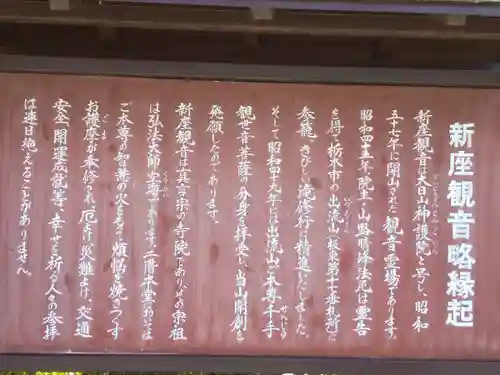 新座観音略縁起
新座観音は大日山神護院と号し、昭和
五十七年に開山された観音霊場であります。
昭和四十五年、院主小山智晴浄法尼は霊告
を得て栃木市の出流山（坂東第十七番札所）に
参籠。きびしい滝修行に精進いたしました。
そして昭和四十九年には出流山ご本尊千手
せんじゅ
観世音菩薩の分身を拝受し当山開創を
発願したのであります。
新座観音は真言宗の寺院でありその宗祖
は弘法大師空海であります。二階本堂においては
ご本尊の智慧の火をもって煩悩を焼きつくす
お護摩が奉修され厄よけ、災難よけ、交通
ごま
安全、開運成就等、幸せを祈る人々の参拝
は連日絶えることがありません。